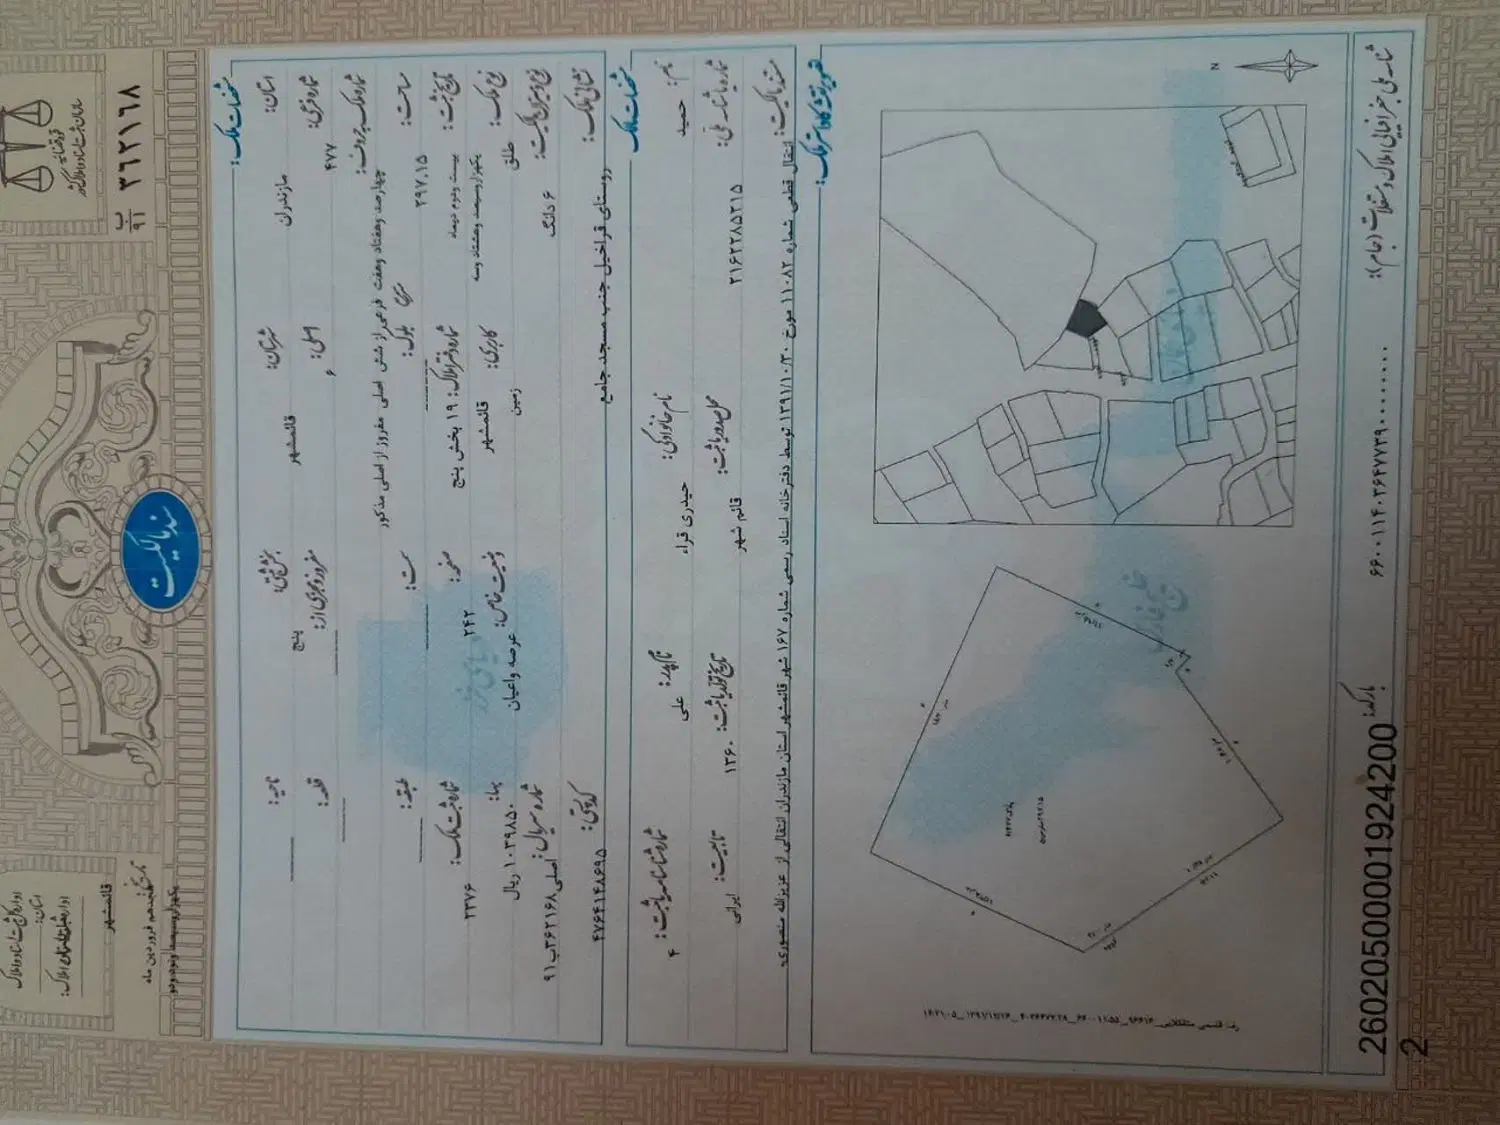 سازمان ثبت اسناد و املاک کشور
قوه قضائیه
ب/۹۱ ۳۶۲۱۶۸
سند مالکیت
اداره کل ثبت اسناد و املاک
استان:
قائمشهر
تاریخ: هجدهم فروردین ماه
یکهزار و سیصد و نود و دو
مشخصات ملک:
استان: مازندران شهرستان: قائمشهر بخش ثبتی: پنج ناحیه:
شماره فرعی: ۴۷۷ اصلی: ۶ مفروز و مجزی از: قطعه:
شماره ملک به حروف: چهارصد و هفتاد و هفت فرعی از شش اصلی مفروز از اصلی مذکور
مساحت: ۲۹۷.۱۵ بلوک: سمت: طبقه:
تاریخ ثبت: بیست و دوم دیماه یکهزار و سیصد و هشتاد و سه شماره دفتر املاک: ۱۹ بخش پنج قائمشهر صفحه: ۲۴۲ شماره ثبت ملک: ۲۳۷۶
نوع ملک: طلق کاربری: زمین وضعیت خاص: عرصه و اعیان بهاء: ۱۰۳۹۸۵۰ ریال
نوع و میزان مالکیت: ۶ دانگ شماره سریال: اصلی ۳۶۲۱۶۸ب۹۱
نشانی ملک: روستای قراخیل جنب مسجد جامع کدپستی: ۴۷۶۴۱۴۸۶۹۵
مشخصات مالک
نام: حمید نام خانوادگی: حیدری قراء نام پدر: علی شماره شناسنامه یا ثبت: ۴
شماره یا شناسه ملی: ۲۱۶۲۲۸۵۲۱۵ محل صدور یا ثبت: قائم شهر تاریخ تولد یا ثبت: ۱۳۶۰ تابعیت: ایرانی
مستند مالکیت: انتقال قطعی شماره ۱۱۰۸۲ مورخ ۱۳۹۱/۱۰/۳۰ توسط دفترخانه اسناد رسمی شماره ۱۶۷ شهر قائمشهر استان مازندران انتقالی از عزیزالله منصوری
تصویر نقشه کاداستر ملک:
N
شناسه ملی جغرافیایی املاک و مستغلات (جام):
بارکد:
26020500001924200
2